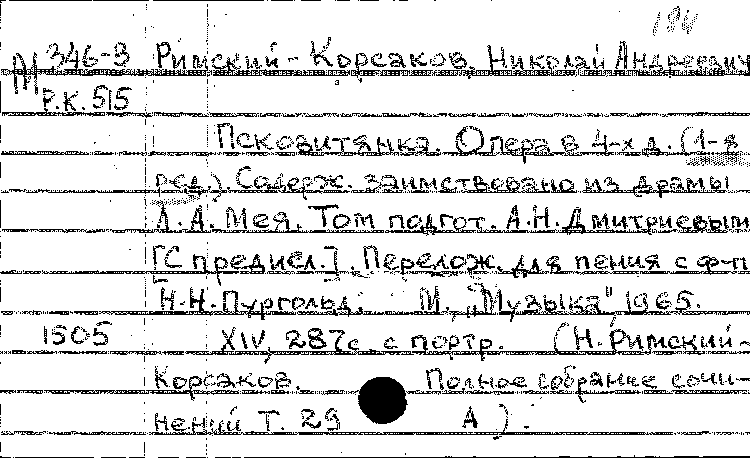 184
М 346-3 Римский-Корсаков, Николай Андреевич
Р.К. 515
Псковитянка. Опера в 4-х д. (1-я
ред.). Содерж. заимствовано из драмы
Л.А. Мея. Том подгот. А.Н. Дмитриевым
[С предисл.]. Перелож. для пения с ф-п
Н.Н. Пургольд. М., "Музыка", 1965.
1505 XIV, 287с. с портр. (Н. Римский-
Корсаков. Полное собрание сочи-
нений Т. 29 А).